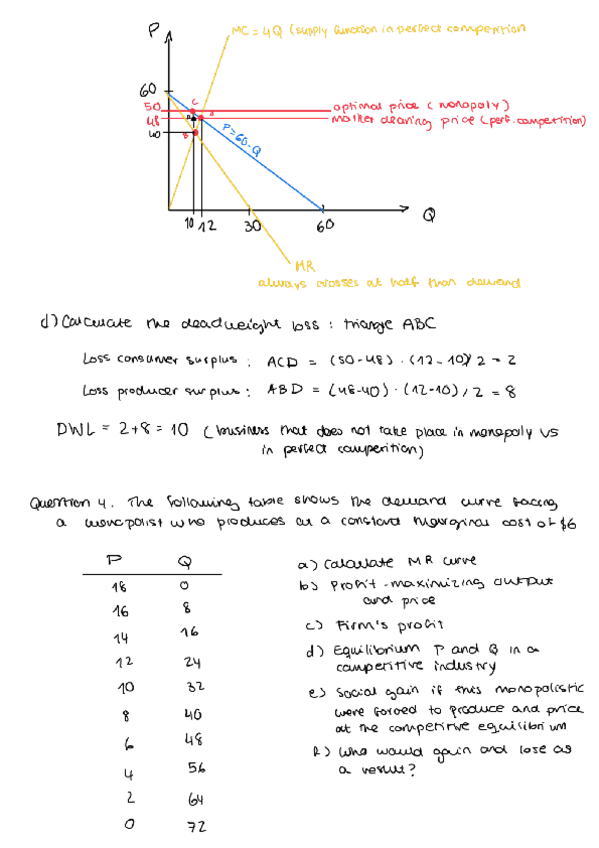 P
MC = 4Q (supply function in perfect competition
60
50
optimal price (monopoly)
48
market clearing price (perf. competition)
40
C
A
B
P=60-Q
10 12 30 60
Q
MR
always crosses at half than demand
d) Calculate the deadweight loss : triange ABC
Loss consumer surplus : ACD = (50-48) · (12-10)/2 = 2
Loss producer surplus : ABD = (48-40) · (12-10)/2 = 8
DWL = 2+8 = 10 (business that does not take place in monopoly vs
in perfect competition)
Question 4. The following table shows the demand curve facing
a monopolist who produces at a constant marginal cost of $6
P Q
18 0
16 8
14 16
12 24
10 32
8 40
6 48
4 56
2 64
0 72
a) Calculate MR curve
b) Profit-maximizing output
and price
c) Firm's profit
d) Equilibrium P and Q in a
competitive industry
e) Social gain if this monopolistic
were forced to produce and price
at the competitive equilibrium
f) Who would gain and lose as
a result?